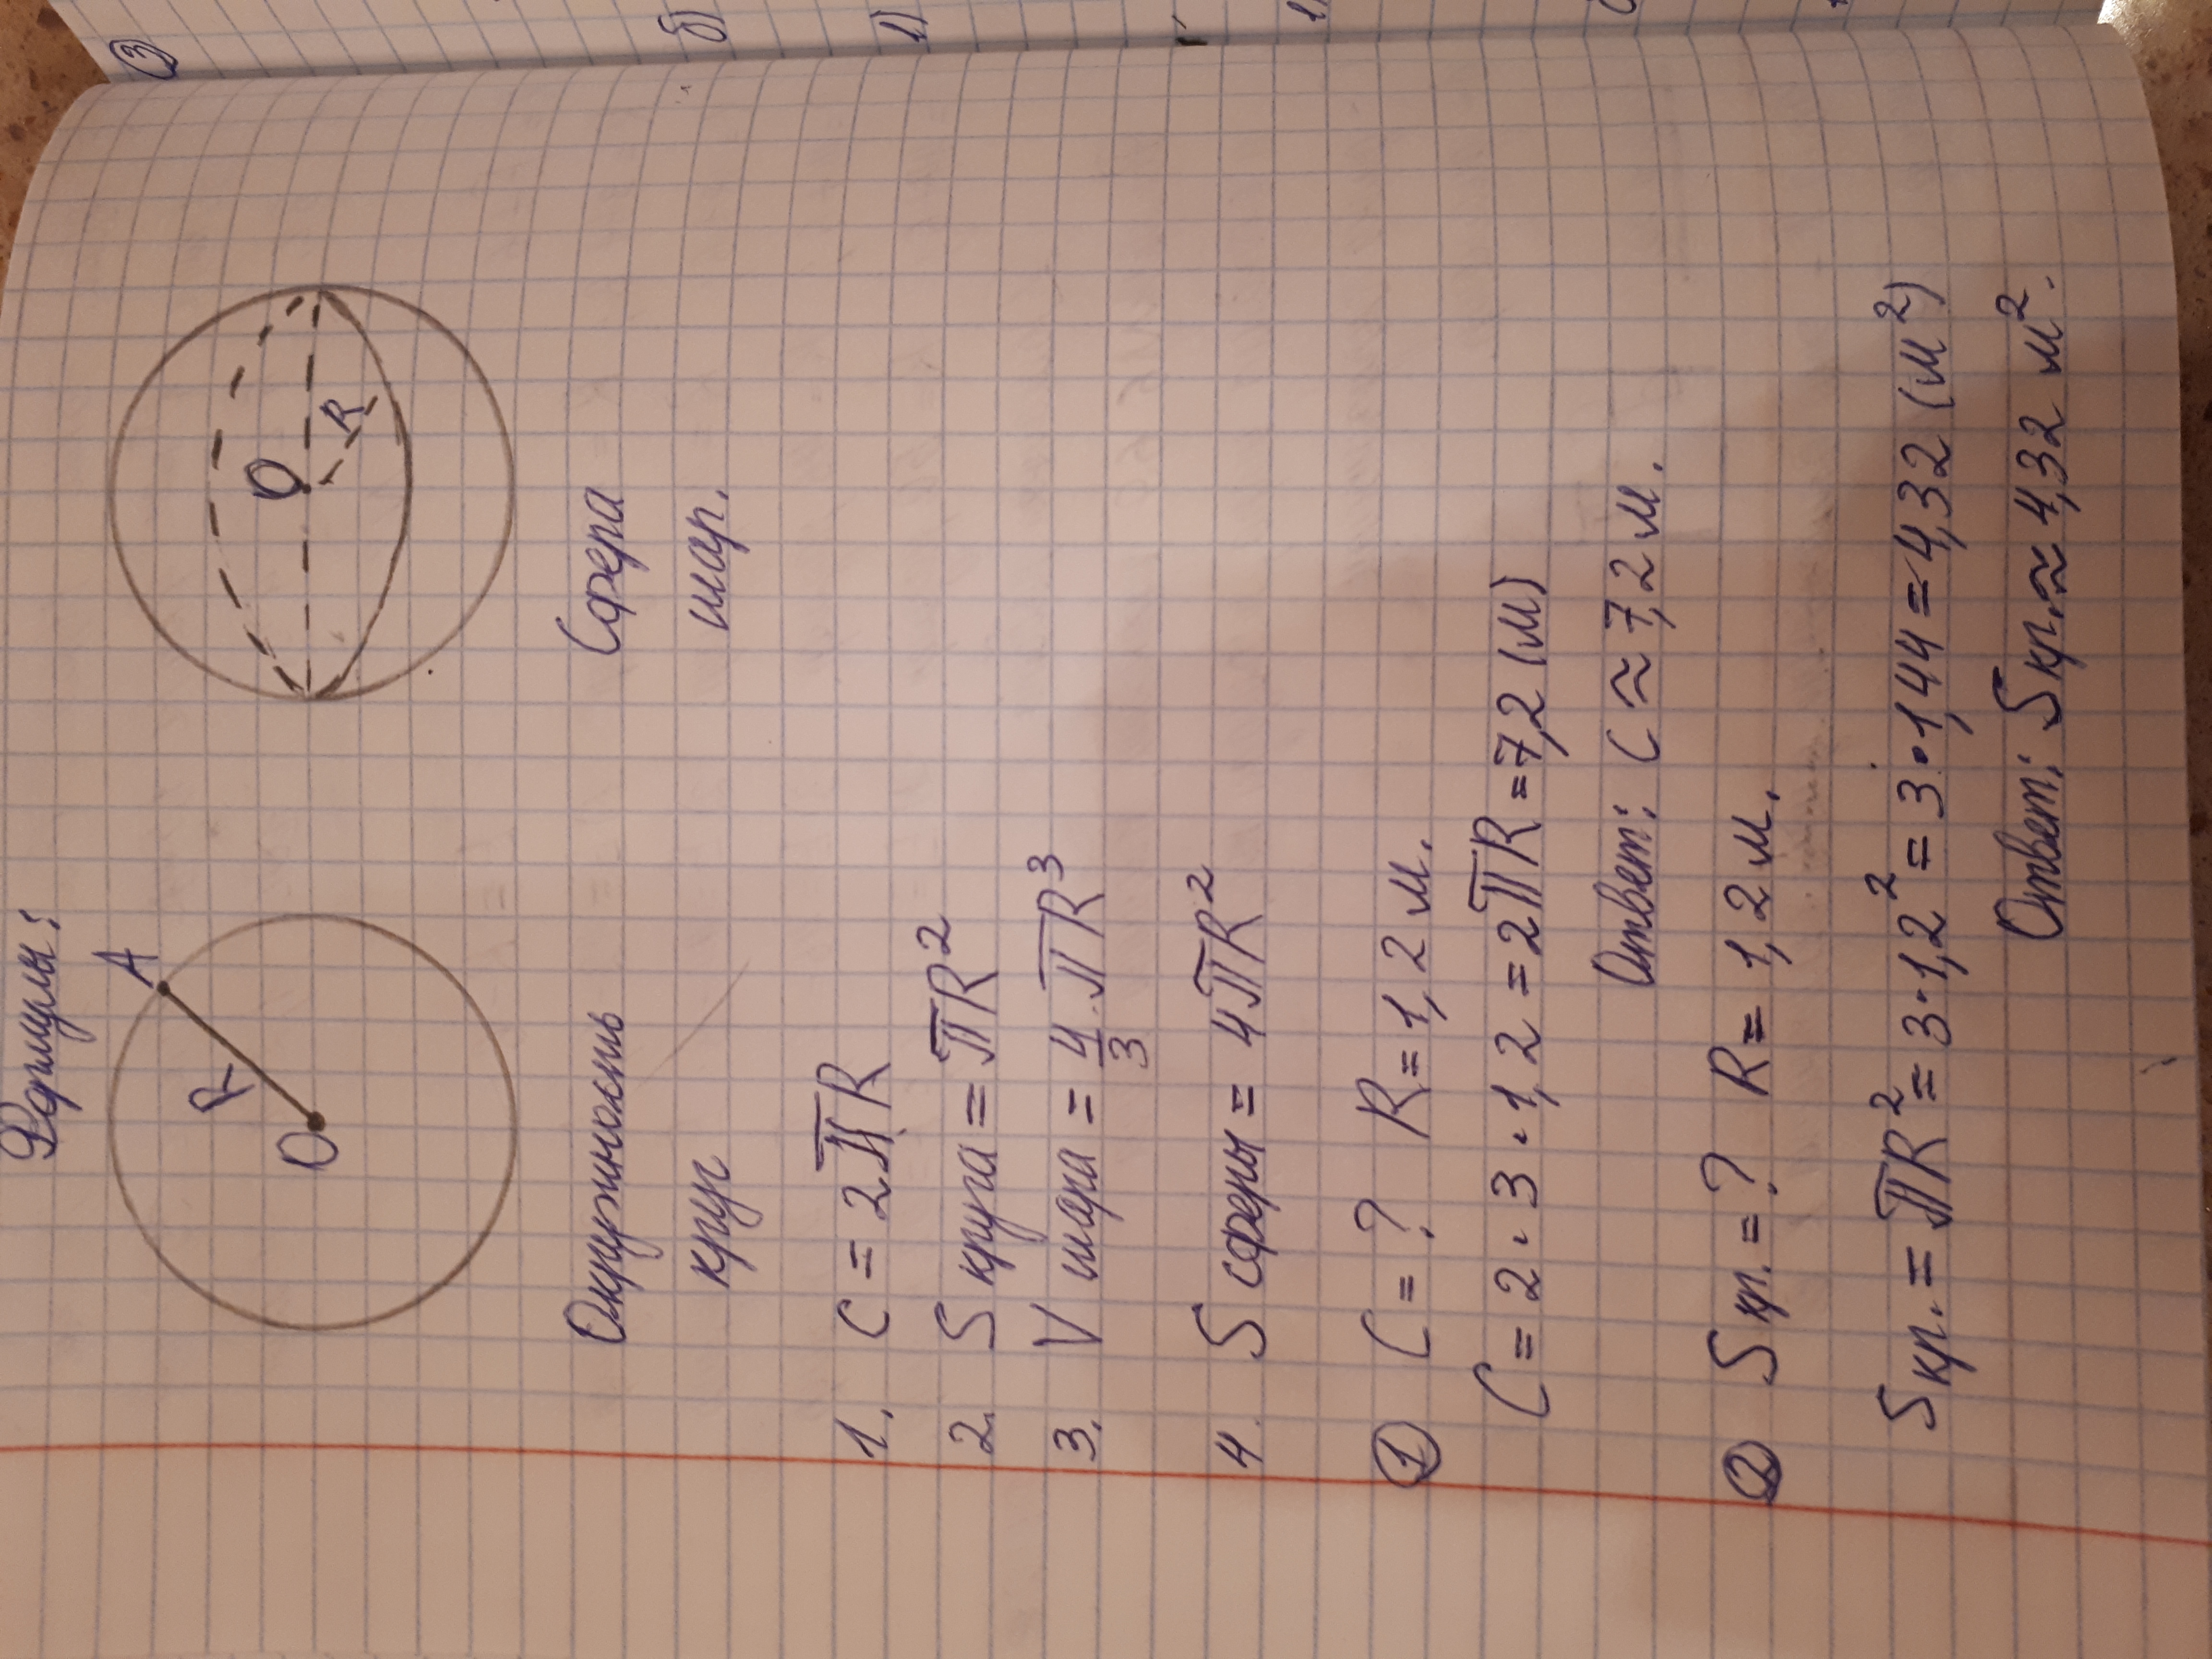 Формулы:
A
R
O
O
R
Окружность
круг
Сфера
шар.
1. C = 2πR
2. S круга = πR²
3. V шара = 4/3 · πR³
4. S сферы = 4πR²
① C = ? R = 1,2 м.
C = 2 · 3 · 1,2 = 2πR = 7,2 (м)
Ответ: C ≈ 7,2 м.
② S кр. = ? R = 1,2 м.
S кр. = πR² = 3 · 1,2² = 3 · 1,44 = 4,32 (м²)
Ответ: S кр. ≈ 4,32 м².
③
б)
1)